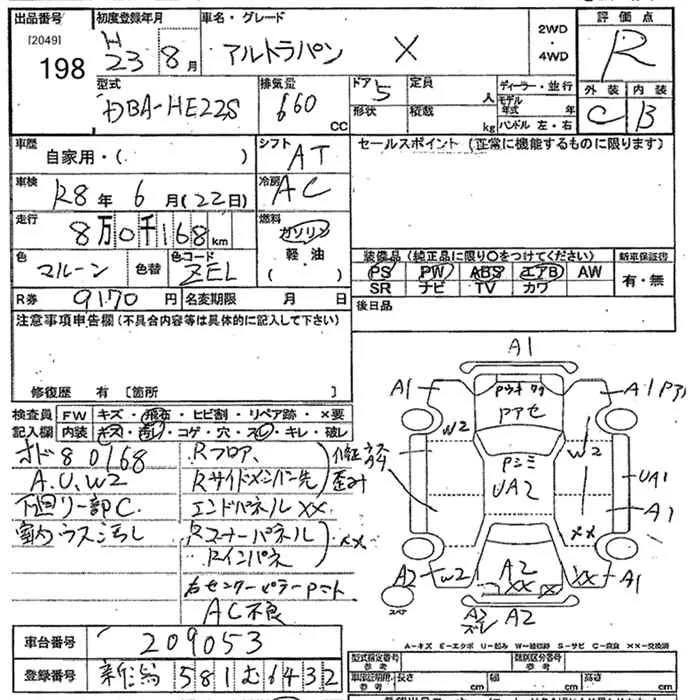 出品番号 [2049] 198
初度登録年月 H 23年 8月
車名・グレード アルトラパン X
2WD ・ 4WD
評価点 R
外装 C 内装 B
型式 DBA-HE22S
排気量 660 CC
ドア 5 形状
定員 人 積載 kg
ディーラー・並行
モデル年式 年
ハンドル 左・右
車歴 自家用・( )
シフト AT
セールスポイント (正常に機能するものに限ります)
車検 R8年 6月(22日)
冷房 AC
走行 8万0千168km
燃料 ガソリン 軽油 ( )
色 マルーン 色替 色コード ZEL
装備品 (純正品に限り○をつけてください) 新車保証書
PS PW ABS エアB AW 有・無
SR ナビ TV カワ
R券 9170円 名変期限 月 日
後日品
注意事項申告欄 (不具合内容等は具体的に記入して下さい)
修復歴 有 [箇所 ]
検査員 FW キズ・飛石・ヒビ割・リペア跡・×要
記入欄 内装 キズ・汚レ・コゲ・穴・スレ・キレ・破レ
オド80168
A.U.W2
下回リ一部C
室内ウスヨゴレ
Rフロア、
Rサイドメンバー先 歪み
エンドパネル XX
Rコーナーパネル
Rインパネ XX
右センターピラー
AC不良
A1
A1
A1
W2
W2
UA2
UA1
A1
XX
A2
W2
A2
XX
XX
A1
A2
スペア
A-キズ E-エクボ U-凹み W-補修跡 S-サビ C-腐食 XX-交換済
車台番号 209053
登録番号 新潟 581 む 6432
型式指定番号 参考 類別区分番号 参考
車庫証明用 参考 長さ cm 幅 cm 高さ cm